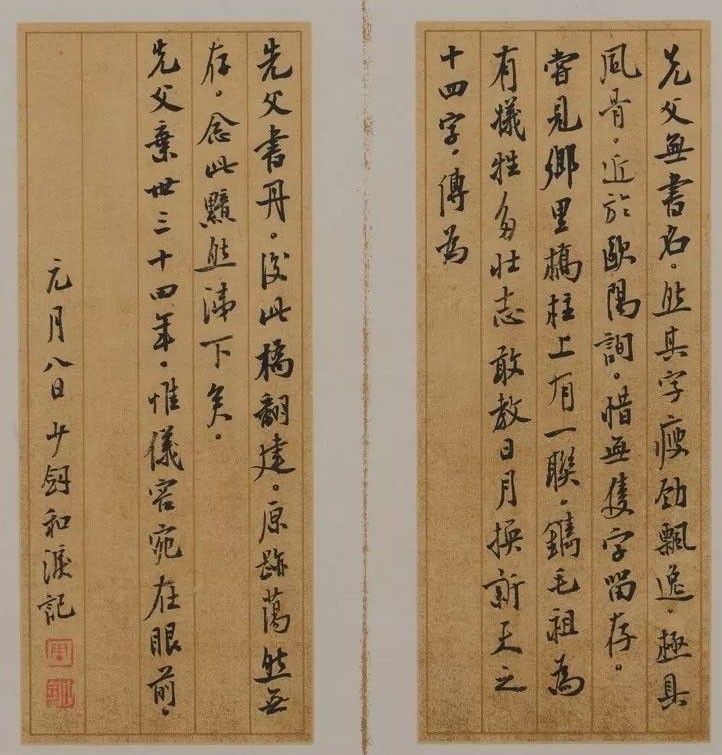 先父無書名。然其字瘦勁飄逸。極具
風骨。近於歐陽詢。惜無隻字留存。
嘗見鄉里橋柱上有一聯。鐫毛祖為
有犧牲多壯志敢教日月換新天之
十四字。傳為
先父書丹。後此橋翻建。原跡蕩然無
存。念此黯然涕下矣。
先父棄世三十四年。惟儀容宛在眼前。
元月八日少釗和淚記